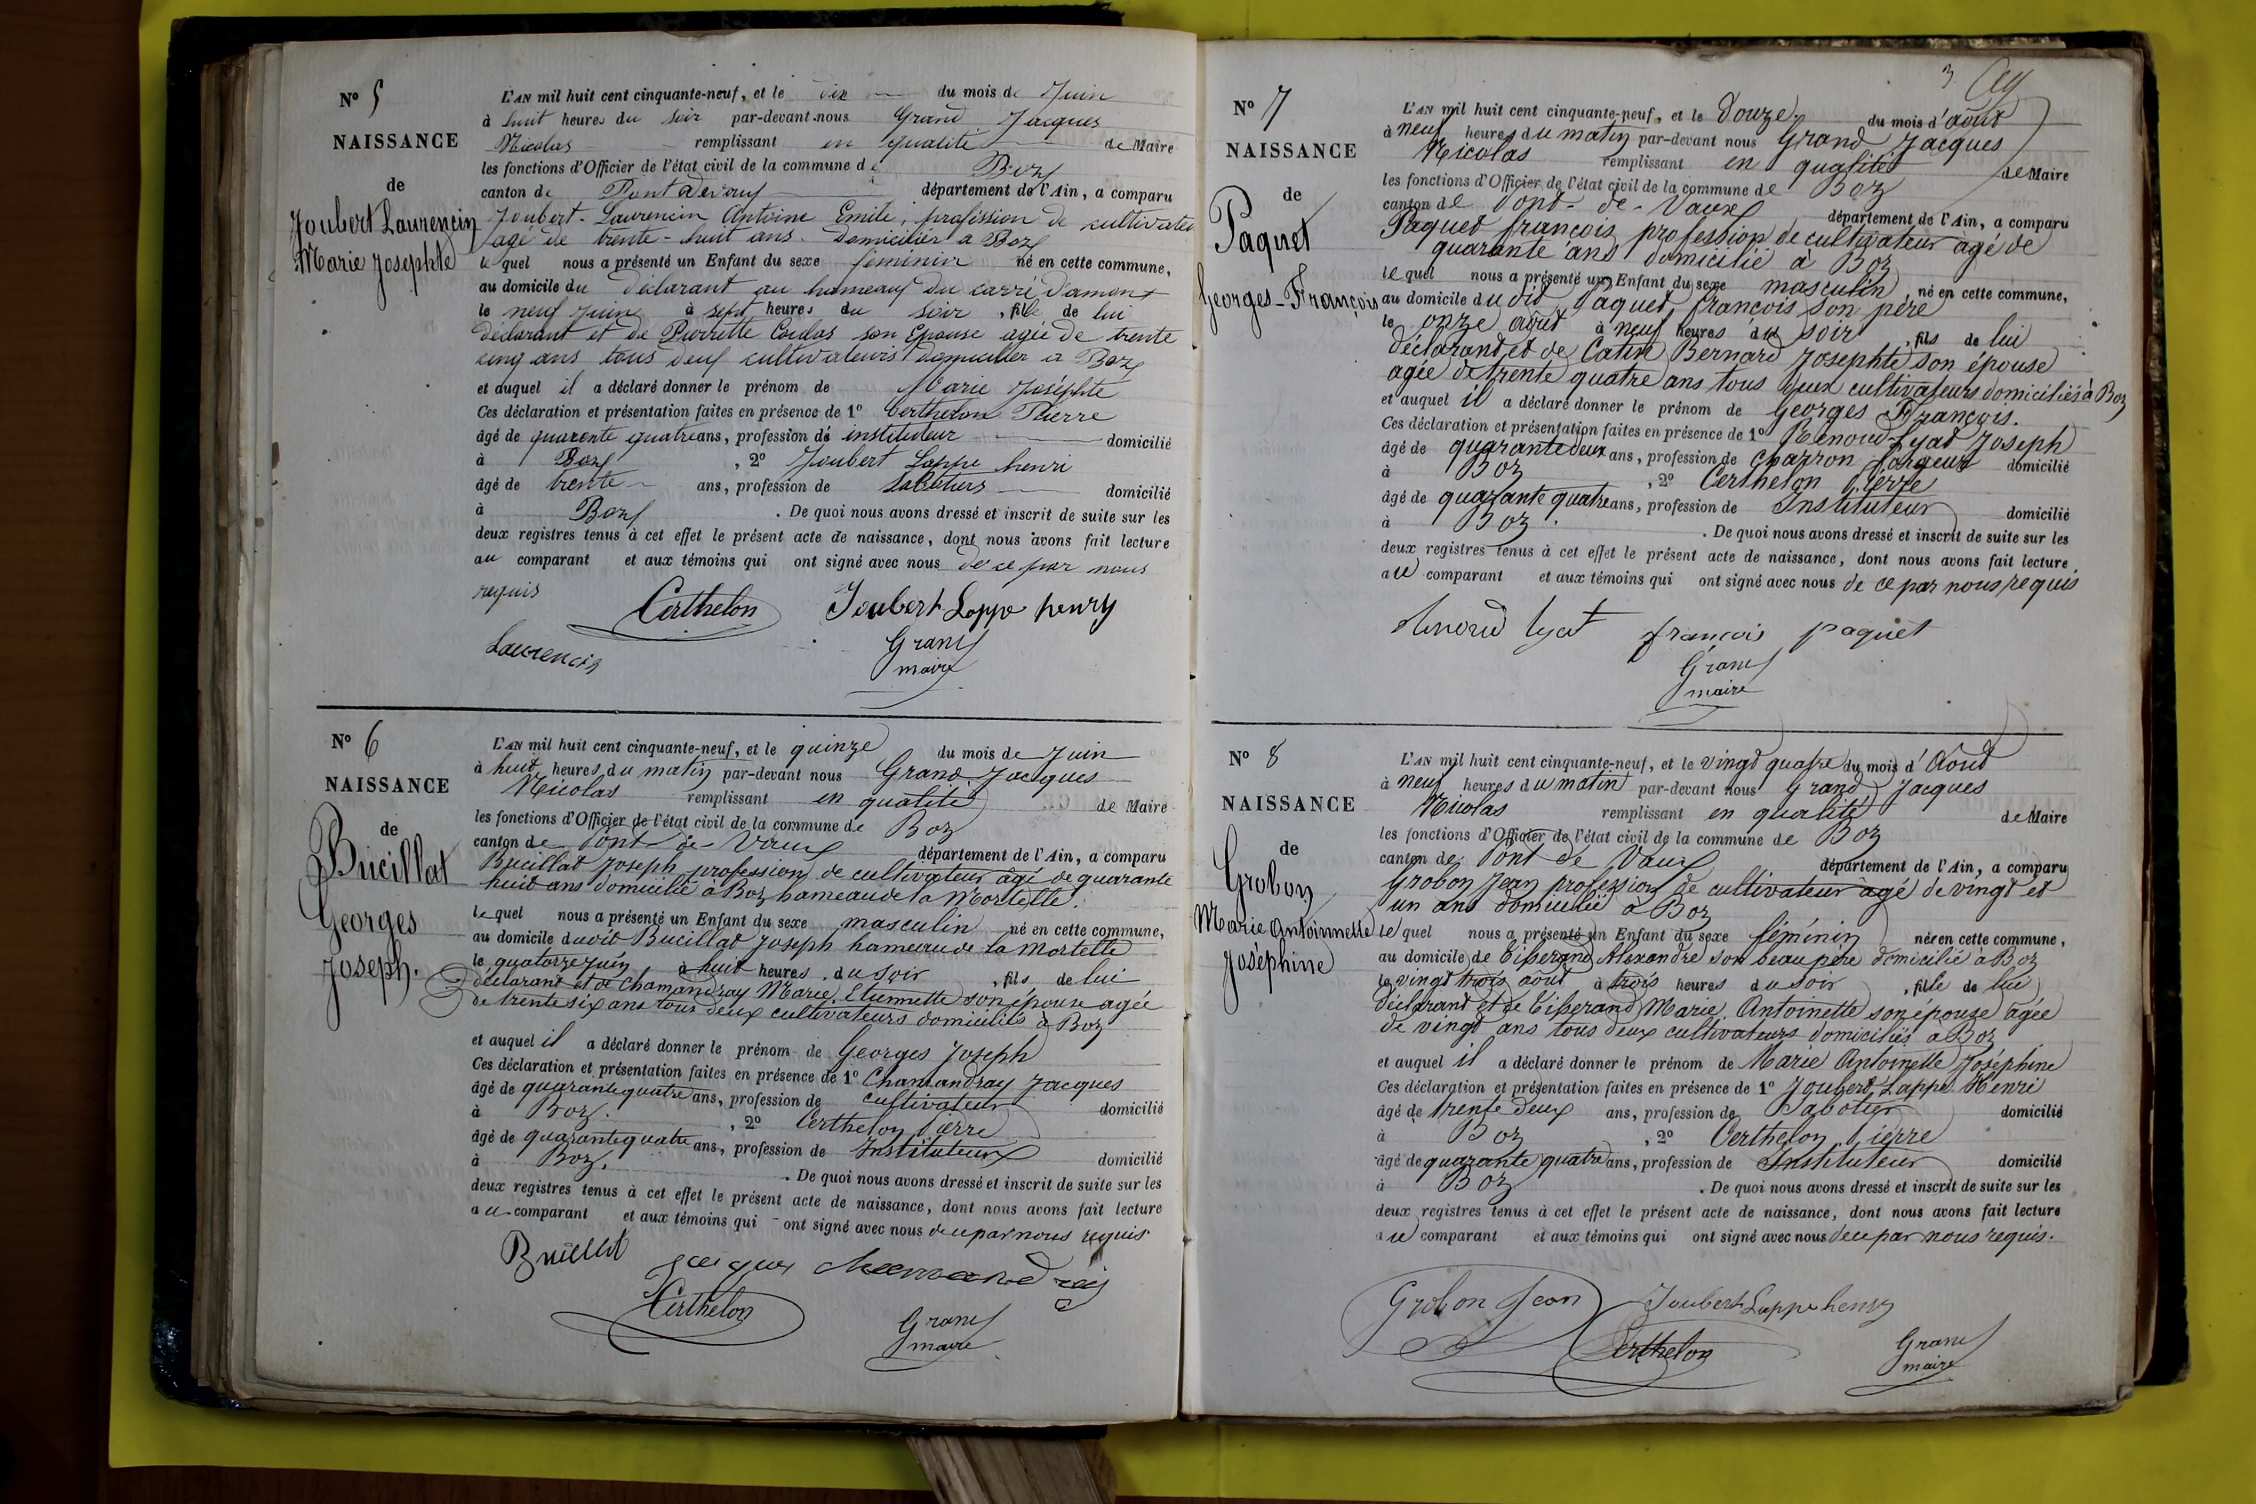 N° 5
NAISSANCE
de
Joubert Laurencin
Marie Josephte
L'AN mil huit cent cinquante-neuf, et le dix du mois de Juin
à huit heures du soir par-devant nous Grand Jacques
Nicolas remplissant en qualité de Maire
les fonctions d'Officier de l'état civil de la commune de Boz
canton de Pont devaux département de l'Ain, a comparu
Joubert-Laurencin Antoine Emile, profission de cultivateu
agé de trente-huit ans. Domicilier a Boz
le quel nous a présenté un Enfant du sexe feminin né en cette commune,
au domicile du déclarant au hameaux du carré d'amont
le neuf Juin à sept heures du soir, fille de lui
déclarant et de Pierrette Coulas son Epouse agée de trente
cinq ans tous deux cultivateurs domicilier a Boz
et auquel il a déclaré donner le prénom de Marie Joséphte
Ces déclaration et présentation faites en présence de 1° Certhelon Pierre
âgé de quarente quatre ans, profession de instituteur domicilié
à Boz, 2° Joubert Loppe henri
âgé de trente ans, profession de Sabotiers domicilié
à Boz. De quoi nous avons dressé et inscrit de suite sur les
deux registres tenus à cet effet le présent acte de naissance, dont nous avons fait lecture
au comparant et aux témoins qui ont signé avec nous de ce par nous
requis
Certhelon Joubert Loppe henry
Laurencin
Grand
maire
N° 6
NAISSANCE
de
Bucillat
Georges
Joseph.
L'AN mil huit cent cinquante-neuf, et le quinze du mois de Juin
à huit heures du matin par-devant nous Grand Jacques
Nicolas remplissant en qualité de Maire
les fonctions d'Officier de l'état civil de la commune de Boz
canton de Pont-de-Vaux département de l'Ain, a comparu
Bucillat Joseph profession de cultivateur âgé de quarante
huit ans domicilié à Boz hameau de la Mortelle.
le quel nous a présenté un Enfant du sexe masculin né en cette commune,
au domicile dudit Bucillat Joseph hameau de la Mortelle
le quatorze juin à huit heures du soir, fils de lui
déclarant et de Chamandray Marie Etiennette son épouse agée
de trente six ans tous deux cultivateurs domiciliés à Boz
et auquel il a déclaré donner le prénom de Georges Joseph
Ces déclaration et présentation faites en présence de 1° Chamandray Jacques
âgé de quarante quatre ans, profession de cultivateur domicilié
à Boz., 2° Certhelon Pierre
âgé de quarante quatre ans, profession de Instituteur domicilié
à Boz. De quoi nous avons dressé et inscrit de suite sur les
deux registres tenus à cet effet le présent acte de naissance, dont nous avons fait lecture
au comparant et aux témoins qui ont signé avec nous de ce par nous requis
jacques
Certhelon
Grand
maire
3
N° 7
NAISSANCE
de
Paquet
Georges-François
L'AN mil huit cent cinquante-neuf, et le Douze du mois d'août
à neuf heures du matin par-devant nous Grand Jacques
Nicolas remplissant en qualité de Maire
les fonctions d'Officier de l'état civil de la commune de Boz
canton de Pont-de-Vaux département de l'Ain, a comparu
Paquet françois profession de cultivateur âgé de
quarante ans domicilié à Boz
le quel nous a présenté un Enfant du sexe masculin, né en cette commune,
au domicile dudit Paquet françois son père
le onze août à neuf heures du soir, fils de lui
déclarant et de Catin Bernard Josephte son épouse
agée de trente quatre ans tous deux cultivateurs domiciliés à Boz
et auquel il a déclaré donner le prénom de Georges François.
Ces déclaration et présentation faites en présence de 1° Renoud-Lyat Joseph
âgé de quarante deux ans, profession de charron forgeur domicilié
à Boz, 2° Certhelon Pierre
âgé de quarante quatre ans, profession de Instituteur domicilié
à Boz. De quoi nous avons dressé et inscrit de suite sur les
deux registres tenus à cet effet le présent acte de naissance, dont nous avons fait lecture
au comparant et aux témoins qui ont signé avec nous de ce par nous requis
Renoud lyat françois paquet
Grand
maire
N° 8
NAISSANCE
de
Grobon
Marie Antoinnette
Joséphine
L'AN mil huit cent cinquante-neuf, et le vingt quatre du mois d'Août
à neuf heures du matin par-devant nous Grand Jacques
Nicolas remplissant en qualité de Maire
les fonctions d'Officier de l'état civil de la commune de Boz
canton de Pont de Vaux département de l'Ain, a comparu
Grobon Jean profession de cultivateur âgé de vingt et
un ans domicilié à Boz
le quel nous a présenté un Enfant du sexe féminin née en cette commune,
au domicile de Tisserand Alexandre son beau père domicilié à Boz
le vingt trois août à trois heures du soir, fille de lui
déclarant et de Tisserand Marie Antoinette son épouse âgée
de vingt ans tous deux cultivateurs domiciliés à Boz
et auquel il a déclaré donner le prénom de Marie Antoinette Joséphine
Ces déclaration et présentation faites en présence de 1° Joubert Loppe Henri
âgé de trente deux ans, profession de Sabotier domicilié
à Boz, 2° Certhelon Pierre
âgé de quarante quatre ans, profession de Instituteur domicilié
à Boz. De quoi nous avons dressé et inscrit de suite sur les
deux registres tenus à cet effet le présent acte de naissance, dont nous avons fait lecture
au comparant et aux témoins qui ont signé avec nous de ce par nous requis.
Grobon Jean Joubert Loppe henry
Certhelon
Grand
maire